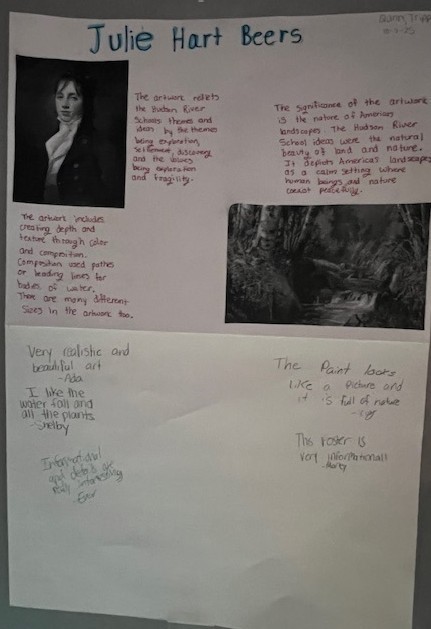 Julie Hart Beers
Quinn, Tripp
The artwork reflects
the Hudson River
Schools themes and
ideas by the themes
being exploration,
settlement, discovery
and the values
being exploration
and fragility.
The significance of the artwork
is the nature of Americas
landscapes. The Hudson River
School ideas were the natural
beauty of land and nature.
It depicts Americas landscapes
as a calm setting where
human beings and nature
coexist peacefully.
The artwork includes
creating depth and
texture through color
and composition.
Composition used pathes
or leading lines for
bodies of water.
There are many different
sizes in the artwork too.
Very realistic and
beautiful art
-Ada
I like the
water fall and
all the plants
-Shelby
and details are
really interesting
The Paint looks
like a picture and
it is full of nature
This poster is
very informational!